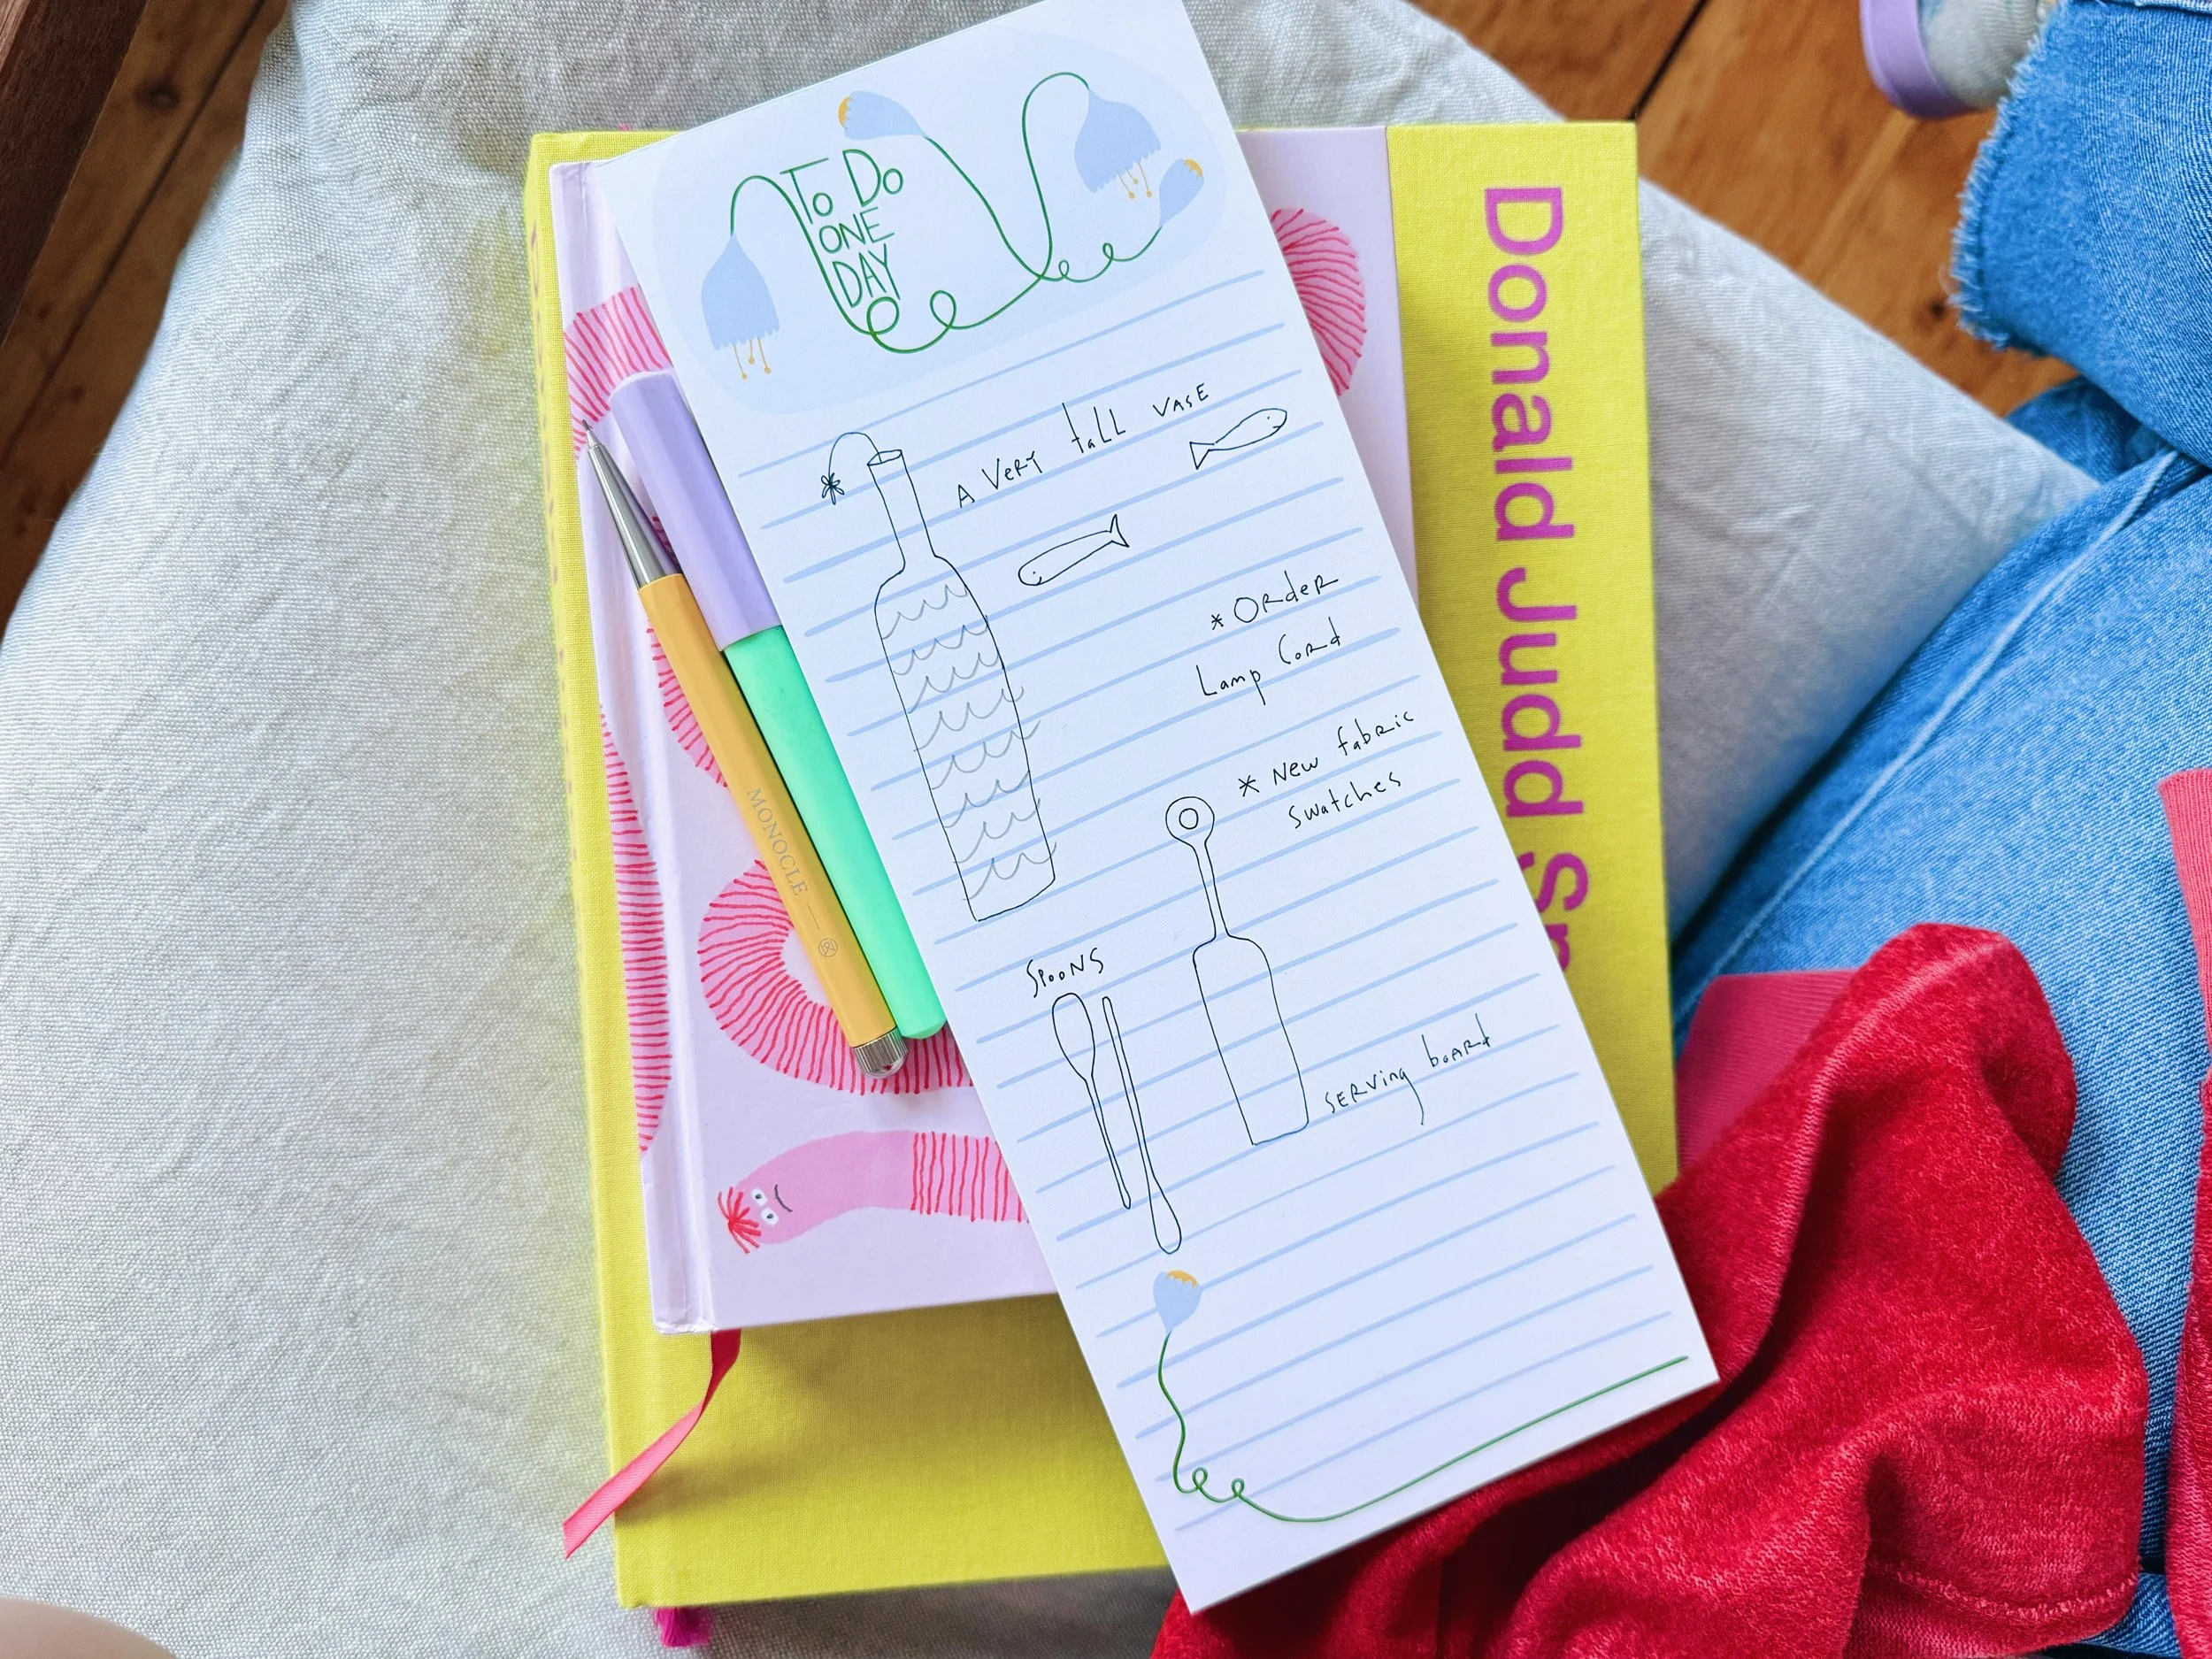 To Do
ONE
DAY
A VERY tall VASE
* Order
Lamp Cord
* New fabric
swatches
Spoons
SERVING board
MONOCLE
Donald Judd